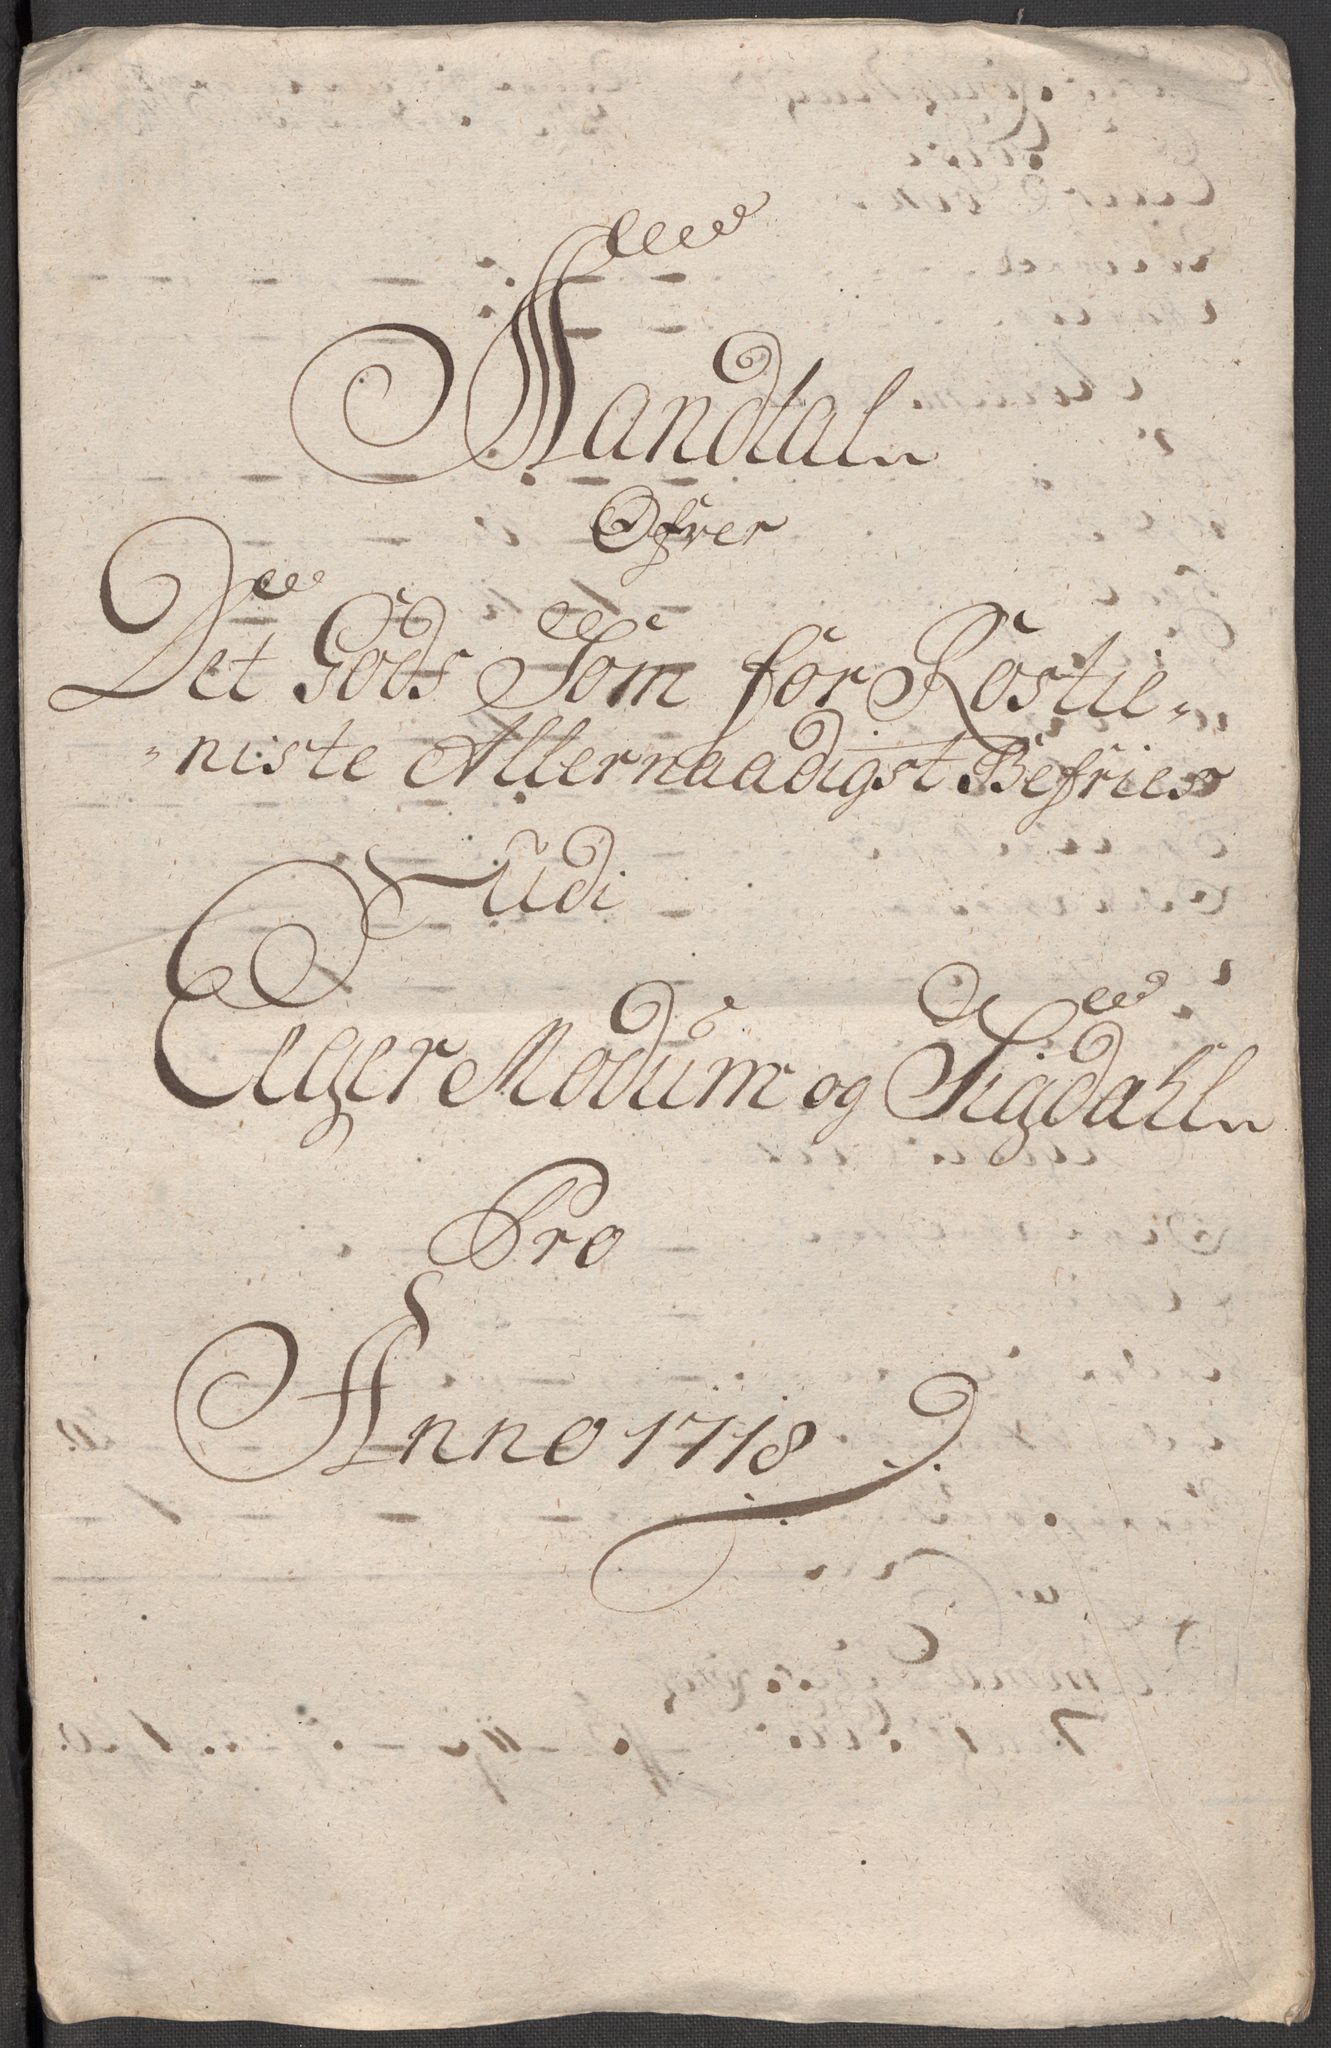 Mandtal
Ofver
Det Gods Som for Rostie=
=niste Allernaadigst Befries
Udi
Eger Modum og Sigdahl
Pro
Anno 1718